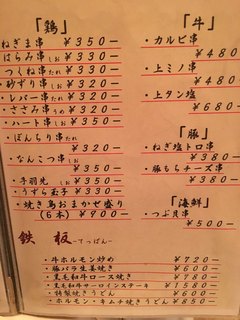 「鶏」
ねぎま串 ¥350ー
はらみ串しお ¥330ー
つくね串たれ ¥320ー
・砂ずり串しお ¥320ー
・レバー串たれ ¥320ー
・ささみ串うめ ¥320ー
・ハート串しお ¥350ー
・ぼんちり串たれ ¥320ー
・なんこつ串しお ¥330ー
・手羽先しお ¥350ー
・うずら玉子 ¥330ー
・焼き鳥おまかせ盛り
(6本) ¥900ー
「牛」
・カルビ串
¥480ー
・上ミノ串
¥480ー
・上タン塩
¥680ー
「豚」
・ねぎ塩トロ串
¥380ー
・豚もちチーズ串
¥380ー
「海鮮」
・つぶ貝串
¥500ー
鉄板 ーてっぱんー
・牛ホルモン炒め ¥720ー
・豚バラ生姜焼き ¥600ー
・黒毛和牛ロース焼き ¥780ー
・黒毛和牛サーロインステーキ ¥1580ー
・特製焼きうどん ¥600ー
・ホルモン・キムチ焼きうどん ¥850ー